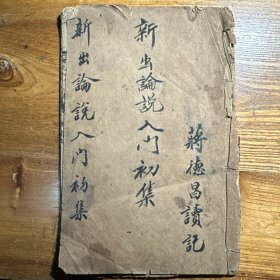 蔣德昌讀記
新出論説入门初集
新出論説入门初集